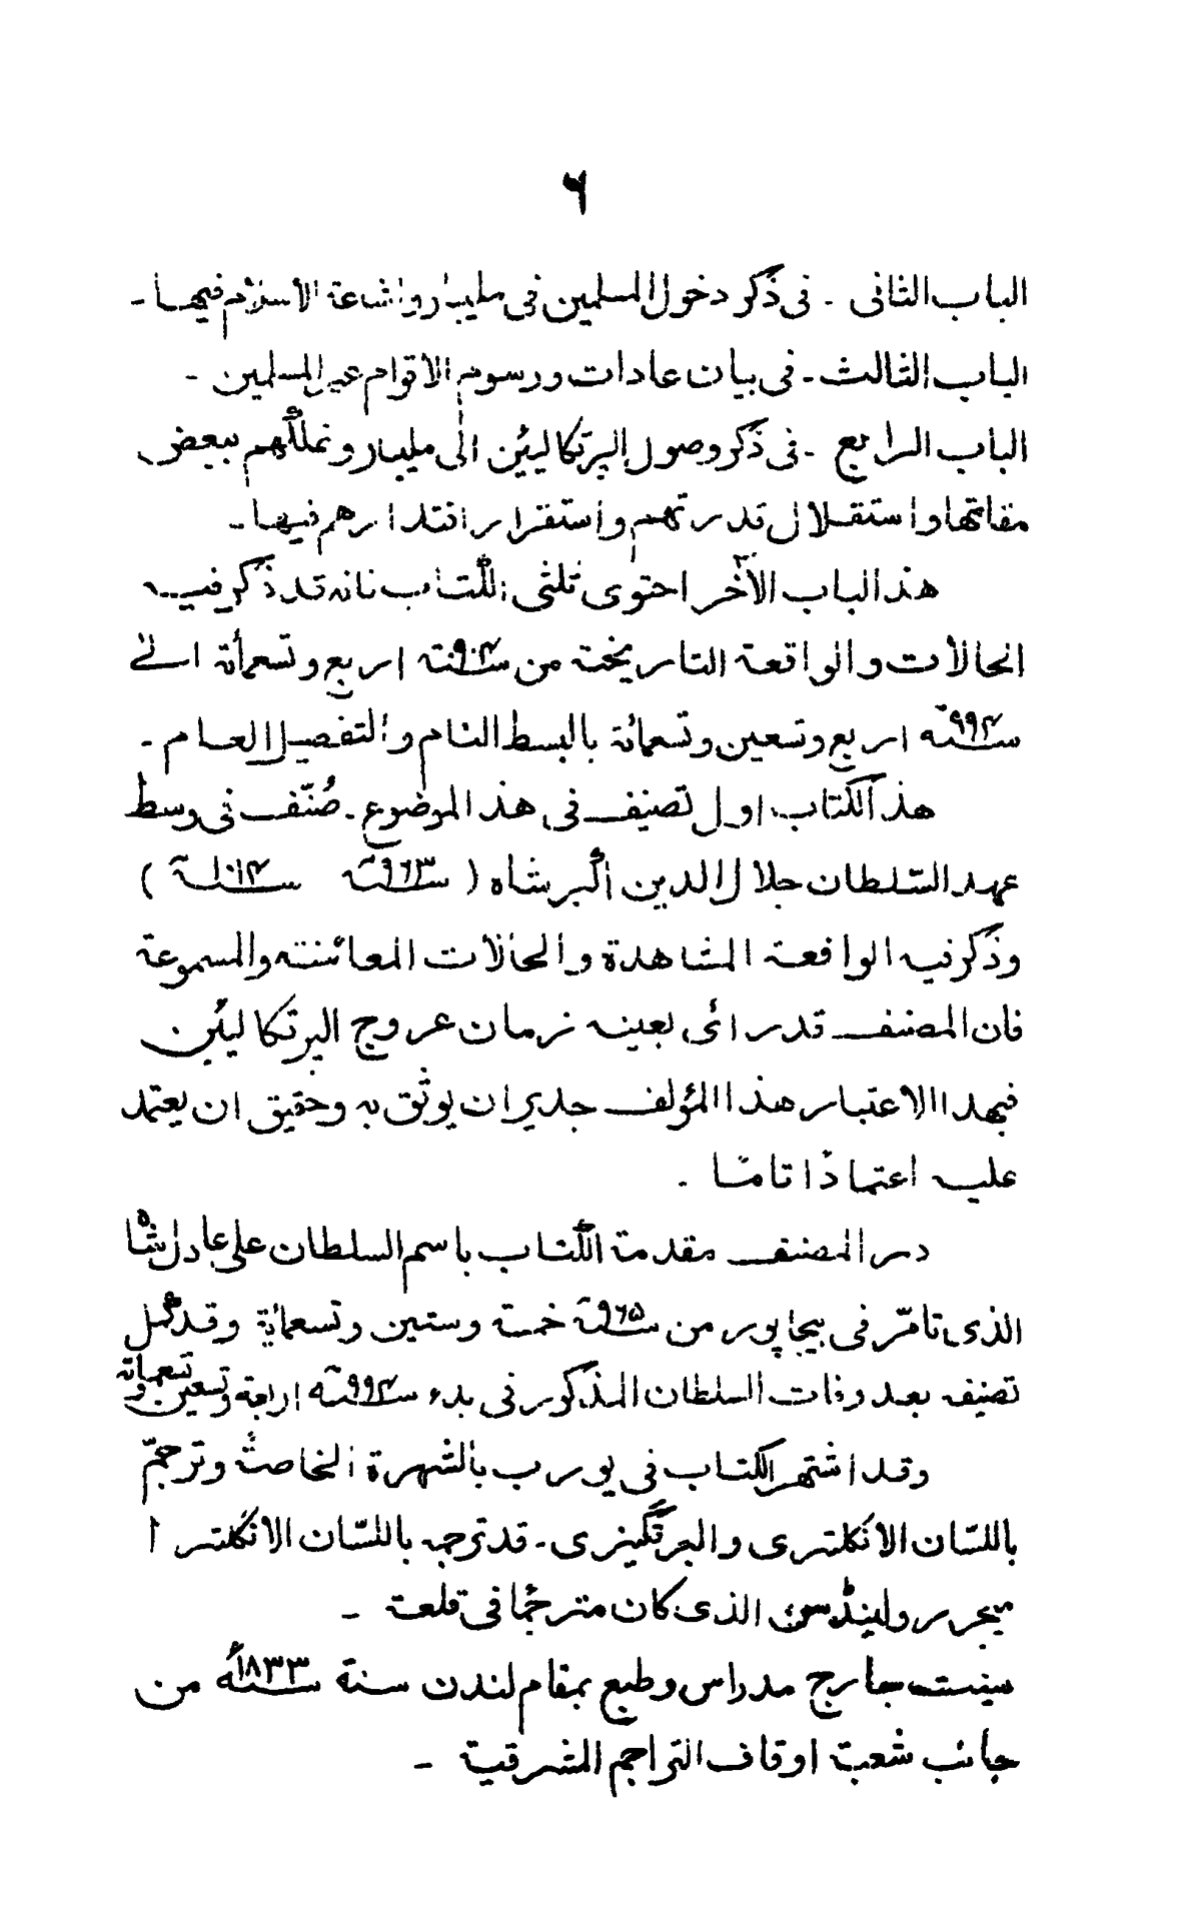 ٦
الباب الثانی - فی ذکر دخول المسلمین فی ملیبار واشاعة الاسلام فیها -
الباب الثالث - فی بیان عادات ورسوم الاقوام غیر المسلمین -
الباب الرابع - فی ذکر وصول البرتکالیئن الی ملیبار وتملکهم ببعض
مقاتها واستقلال قدرتهم واستقرار اقتدارهم فیها -
هذا الباب الآخر احتوی ثلثی الکتاب فانه قد ذکر فیه
الحالات والواقعة التاریخیة من سنة ٩٠٤ اربع وتسعمأة الی
سنة ٩٩٤ اربع وتسعین وتسعمائة بالبسط التام والتفصیل العام -
هذا الکتاب اول تصنیف فی هذا الموضوع - صُنّف فی وسط
عهد السّلطان جلال الدین أکبر شاه ( سنة ٩٦٣ سنة ١٠١٤ )
وذکر فیه الواقعة المشاهدة والحالات المعائنته والمسموعة
فان المصنف قد رائ بعینه زمان عروج البرتکالیئن
فبهذا الاعتبار هذا المؤلف جدیر ان یوثق به وحقیق ان یعتمد
علیه اعتمادًا تامًا -
در المصنف مقدمة الکتاب باسم السلطان علی عادل شاه
الذی تامّر فی بیجاپور من سنة ٩٦٥ خمسة وستین وتسعمائة وقد کمل
تصنیف بعد وفات السلطان المذکور فی بدء سنة ٩٩٤ اربعة وتسعین وتسعمائة
وقد اشتهر الکتاب فی یورب بالشهرة الخاصة وترجمّ
باللسّان الانکلتری والبرتگیزی - قد ترجمه باللسّان الانکلترا
میجر رولینڈسن الذی کان مترجمًا فی قلعة -
سینت جارج مدراس وطبع بمقام لندن سنة ١٨٣٣ من
جانب شعبة اوقاف التراجم الشرقیة -